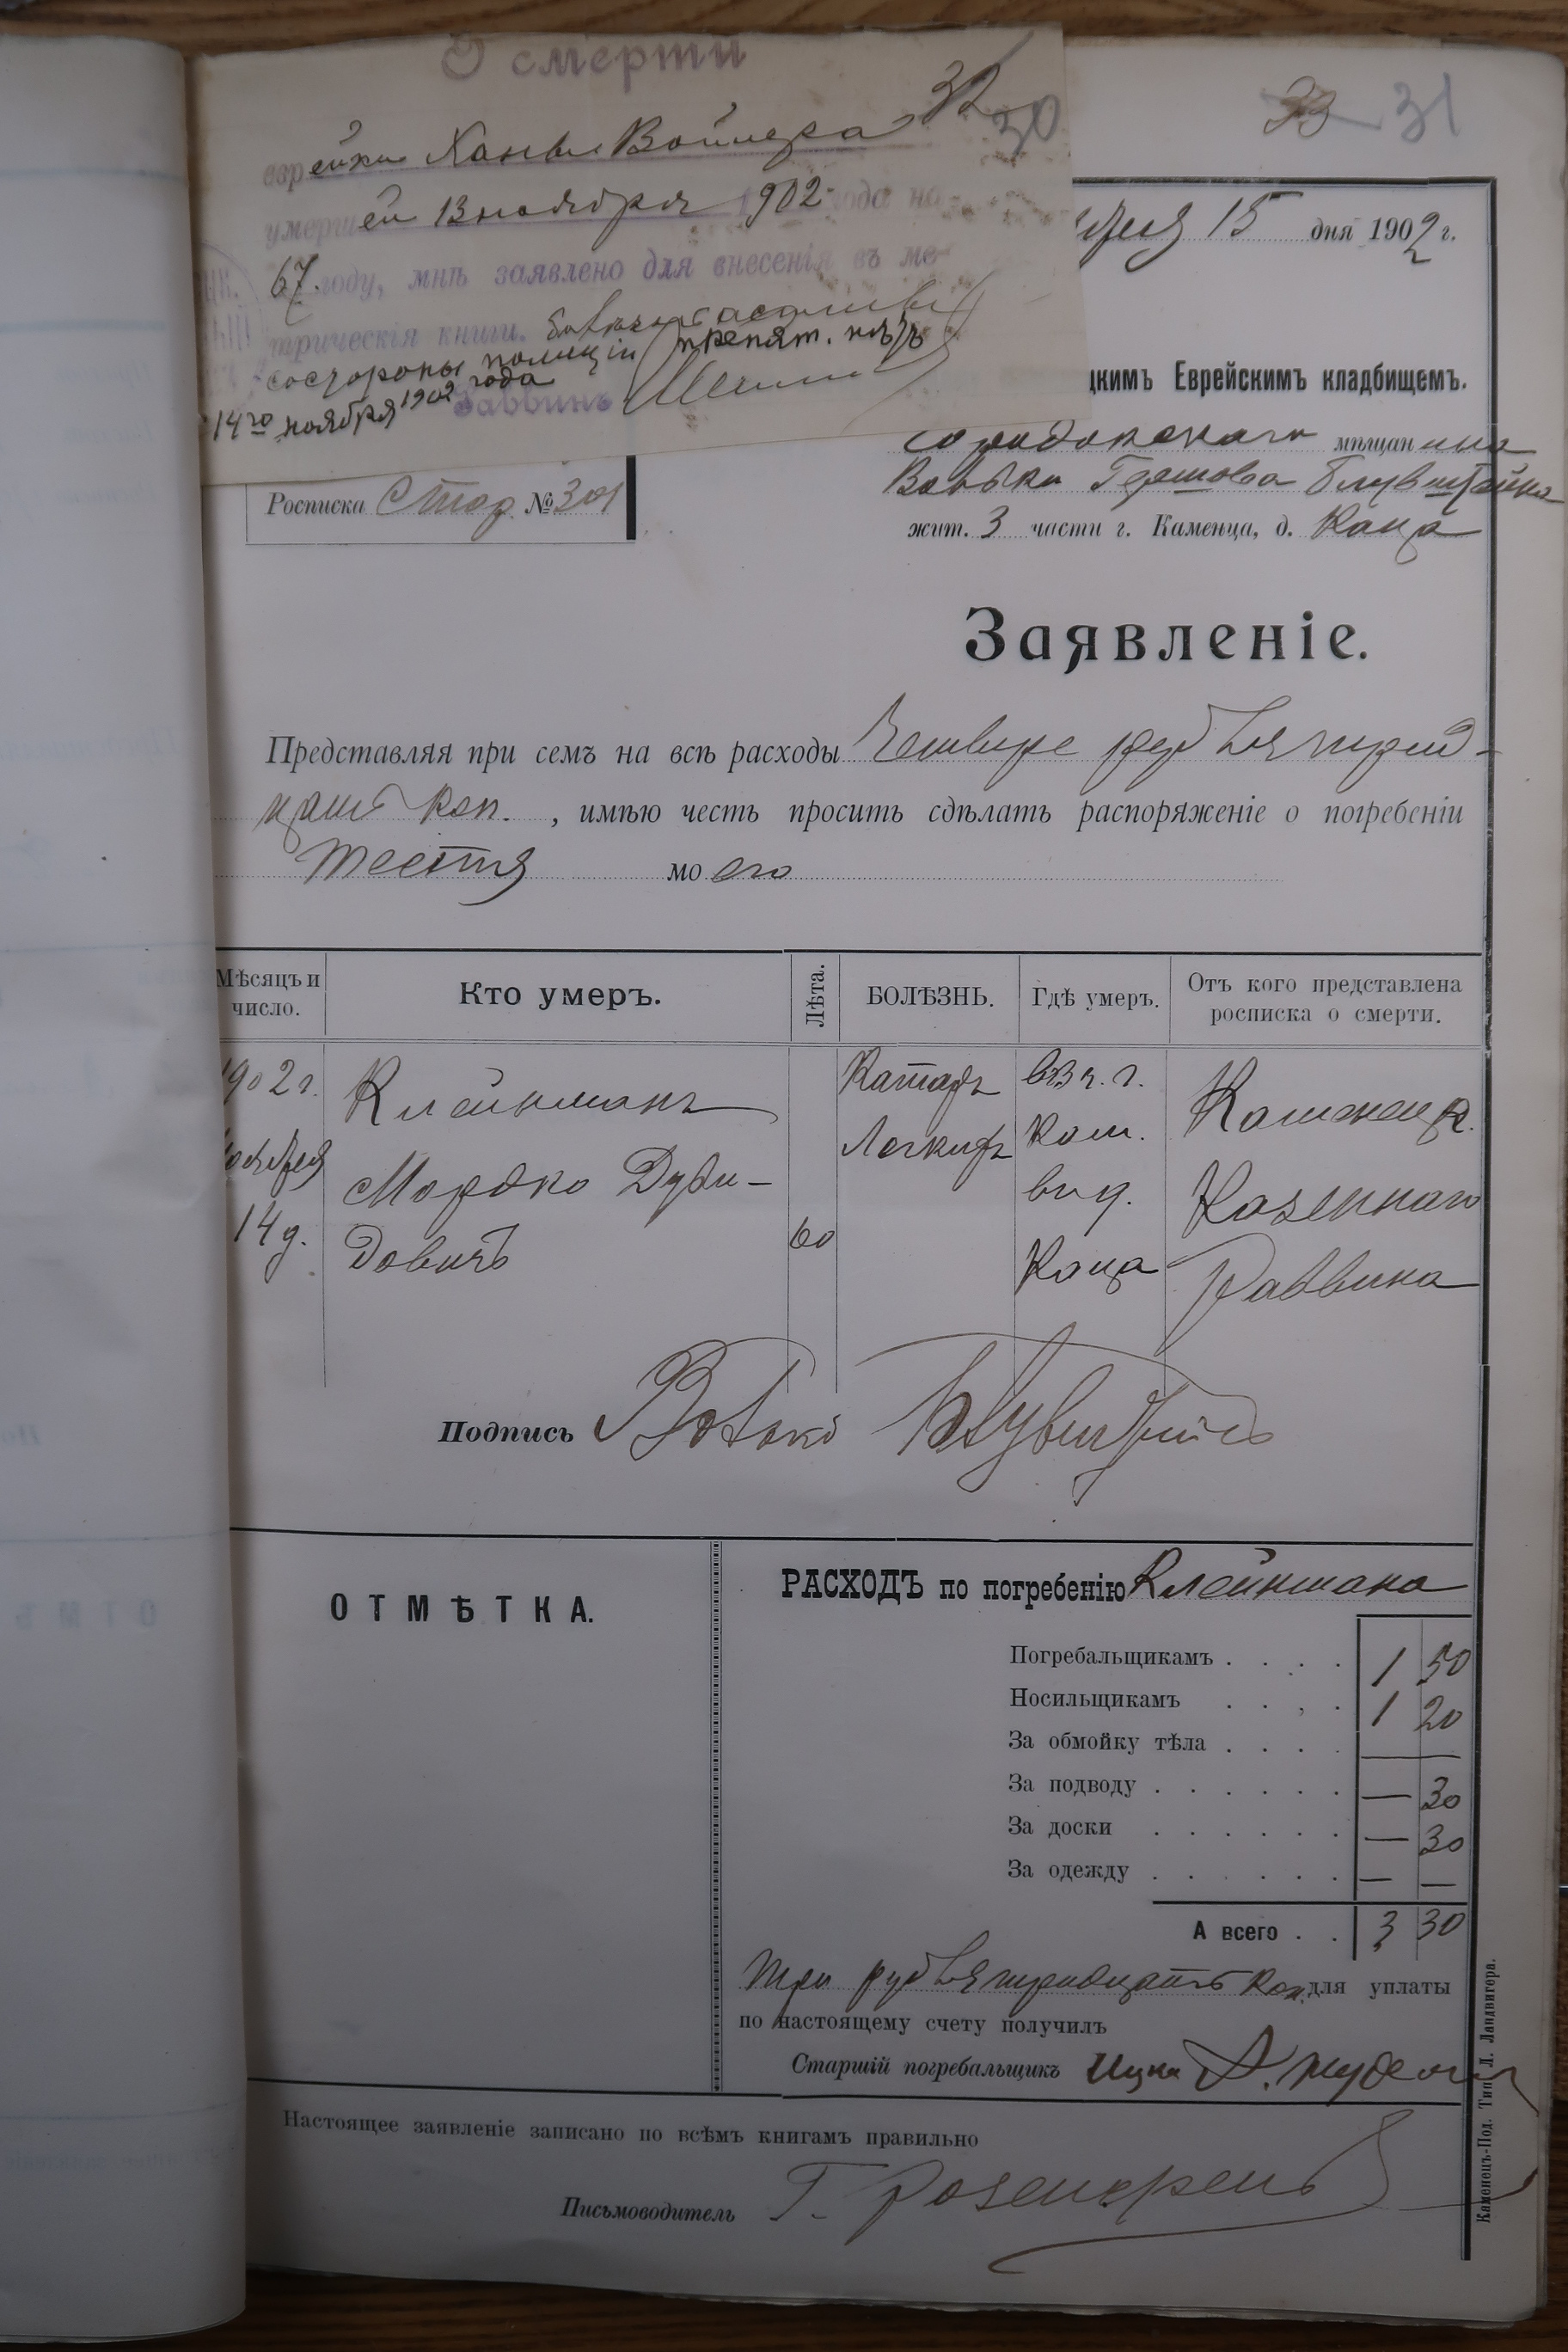 О смерти
32
30
33 31
еврейки Ханы Войнера
умершей 13 ноября 1902 года на
67 году, мнѣ заявлено для внесенія въ ме-
трическія книги.
со стороны полиціи препят. нѣтъ
14го ноября 1902 года
Раввинъ
ября 15 дня 1902 г.
цкимъ Еврейскимъ кладбищемъ.
мѣщанина
Волька Гершова Блувштейна
Росписка Стор. № 301
жит. 3 части г. Каменца, д. Каца
Заявленіе.
Представляя при семъ на всѣ расходы Четыре рубля трид-
цать коп. , имѣю честь просить сдѣлать распоряженіе о погребеніи
тестя моего
Мѣсяцъ и число.
Кто умеръ.
Лѣта.
БОЛѢЗНЬ.
Гдѣ умеръ.
Отъ кого представлена росписка о смерти.
902 г.
ноября
14 д.
Клейнманъ
Мордко Дуви-
довичъ
60
Катаръ
Легкихъ
въ 3 ч. г.
Кам.
въ д.
Каца
Каменец.
Казеннаго
Раввина
Подпись Волько Блувштейнъ
ОТМѢТКА.
РАСХОДЪ по погребенію Клейнмана
Погребальщикамъ . . . . 1 50
Носильщикамъ . . . 1 20
За обмойку тѣла . . . . —
За подводу . . . . . . — 30
За доски . . . . . . — 30
За одежду . . . . . . — —
А всего . . 3 30
Три рубля тридцать коп. для уплаты
по настоящему счету получилъ
Старшій погребальщикъ Ицко
Настоящее заявленіе записано по всѣмъ книгамъ правильно
Письмоводитель Г. Розенкренъ
Каменецъ-Под. Тип. Л. Ландвигера.